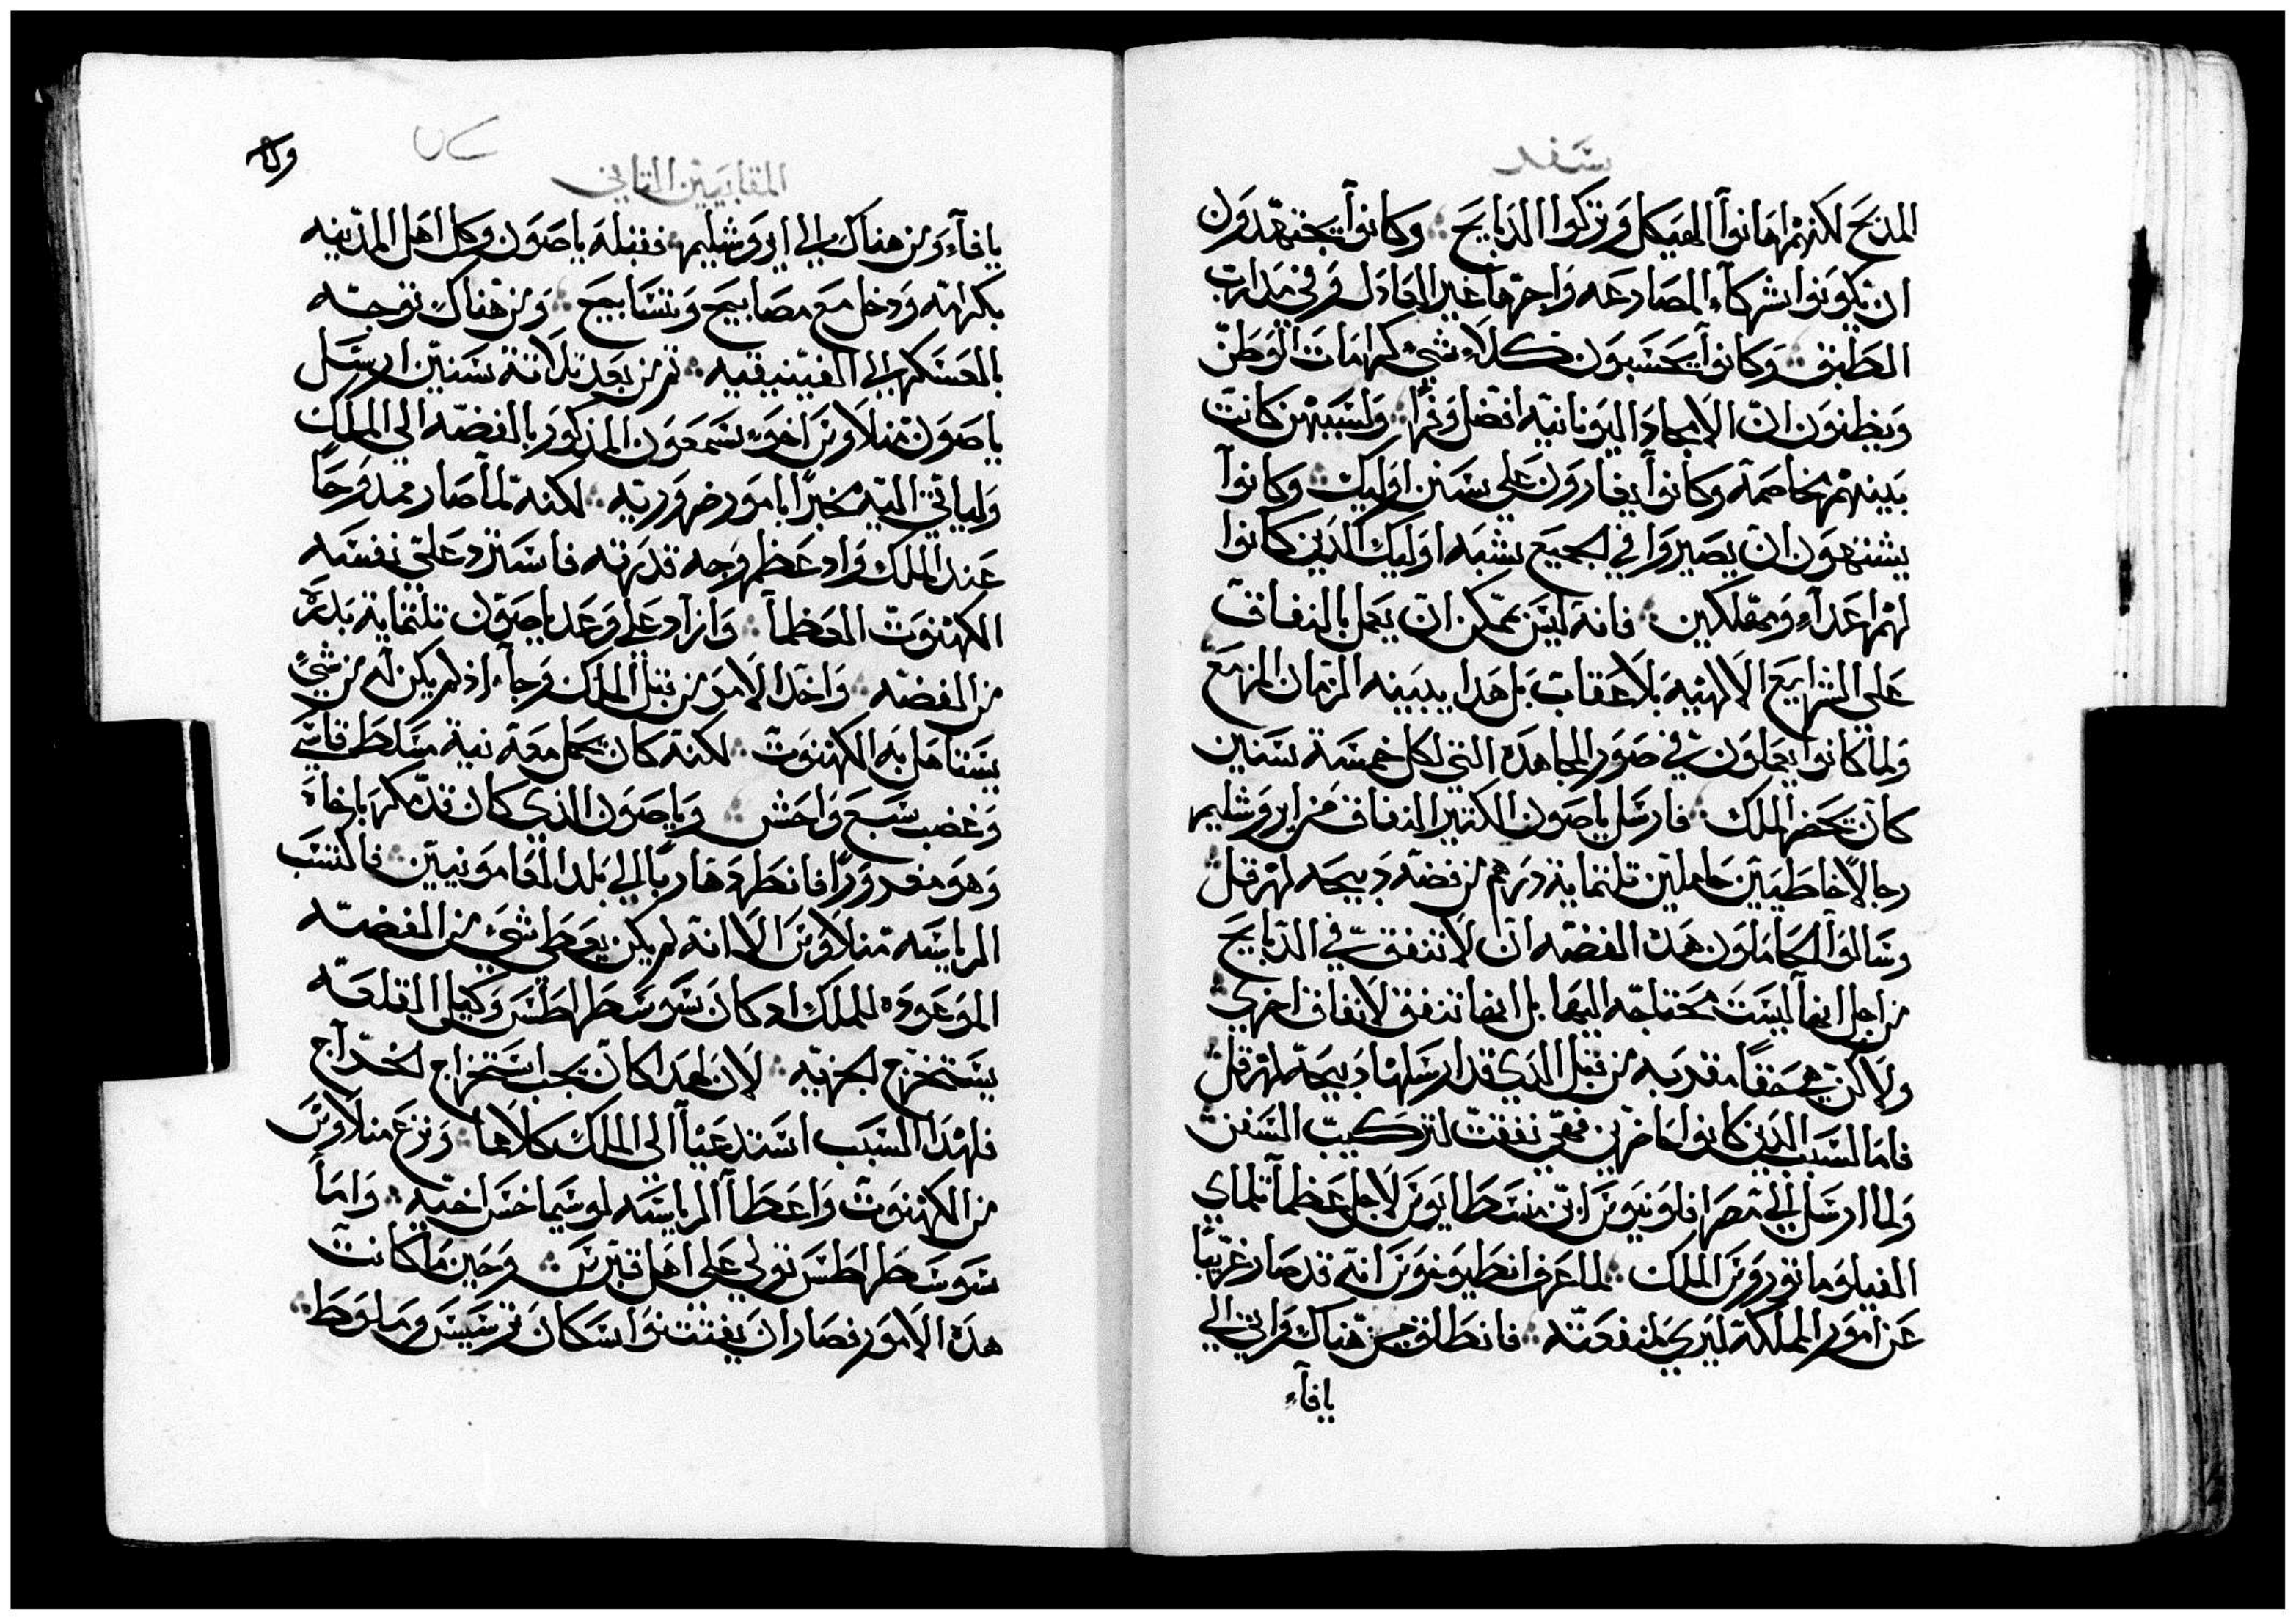 سفر
المذبح لكنهم اهانوا الهيكل وتركوا الذبايح وكانوا يجتهدون
ان يكونوا شركآء المصارعه واجرها غير العادل وفي مدارب
الطابق وكانوا يحسبون كلا شي كرامات الوطن
ويظنون ان الامجاد اليونانيه افضل وخرًا ولسببهن كانت
بينهم مخاصمة وكانوا يغارون على سنن اوليك وكانوا
يشتهون ان يصيروا في الجميع بشبه اوليك الذين كانوا
لهم اعدآء ومهلكين فانه ليس يمكن ان يعمل بالنفاق
على الشرايع الالهيه بلا عقاب بل هدا يبينه الزمان المزمع
ولما كانوا يعملون في صور المجاهده التي لكل خمسة سنين
كان يحضر الملك فارسل ياصون الكتير النفاق من ايروشليم
رجالًا خاطيين حاملين تلتماية درهم من فضه دبيحه لهرقل
وسالوا الحاملون هده الفضه ان لا تنفق في الدبايح
من اجل انها ليست محتاجه اليها بل انها تنفق لانفاق اخري
ولاكن هي حقًا مقدمه من قبل الدي قد ارسلها دبيحة لهرقل
فاما لسبب الدين كانوا حاضرين فهي نفقت لتركيب السفن
ولما ارسل الى مصر افلونيوس ابن منسطاايوس لاجل عظمآ تلماي
الفيلوماتورس الملك لما عرف انطيوخوس انه قد صار غريبًا
عن امور المملكة ليري لمنفعته فانطلق من هناك واتي الي
يافآء
المقابيين التاني
يافآء ومن هناك الي ايروشليم فقبله ياصون وكل اهل المدينه
بكرامه ودخل مع مصابيح وتسابيح ومن هناك توجه
بالعسكر الي الفينيقيه تم من بعد تلاتة سنين ارسل
ياصون منلاوس اخو سمعون المذكور بالفضه الى الملك
ولياتي اليه مخبرًا بامور ضروريه لكنه لما صار ممدوحًا
عند الملك واد عظم وجه قدرته فاسترد على نفسه
الكهنوت العظما وازاد على وعد ياصون تلتماية بدرة
من الفضه واخد الامر من قبل الملك وجآء اد لم يكن له من شيً
يستاهل به الكهنوت لكنه كان يحمل معه نية متسلط قاسي
وغضب سبع واحش وياصون الدي كان قد مكر باخاه
وهو مغدورًا فانطرد هاربًا الي بلد العامونيين فاكتسب
الرياسه منلاوس الا انه لم يكن يعطى شي من الفضه
الموعوده للملك اد كان سوسطراطس وكيل القلعه
يستخرج الجزيه لان لهدا كان يجب استخراج الخراج
فلهدا السبب استدعيا الى الملك كلاهما ونزع منلاوس
من الكهنوت واعطا الرياسه لوسيماخس اخيه واما
سوسطراطس تولي على اهل قبرس وحين ما كانت
هده الامور فصار ان يفتتنوا سكان ترسيس وملوط